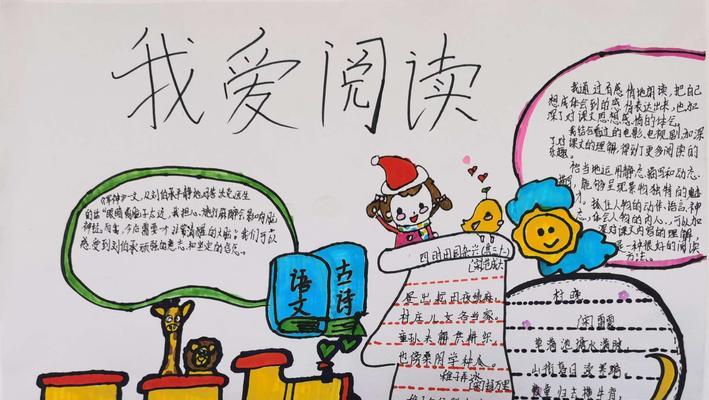 我爱阅读
《军神》一文,从刘伯承平静地对沃克医生
的话“眼睛离脑子太近,我担心施行麻醉会影响脑
神经。而我,今后需要一个非常清醒的大脑!”我们可以
感受到刘伯承顽强的意志和坚定的信念。
语文
古诗
四时田园杂兴(其三十一)
[宋]范成大
昼出耘田夜绩麻
村庄儿女各当家。
童孙未解供耕织
也傍桑阴学种瓜。
稚子弄冰
[宋]杨万里
我通过有感情地朗读,把自己
想或体会到的感情表达出来,也加
深了对课文思想感情的体会。
我结合看过的电影、电视剧,加深
了对课文的理解,得到了更多阅读的
乐趣。
恰当地运用静态描写和动态
描写,能够呈现景物独特的魅
力。抓住人物的动作、语言、神
态,体会人物的内心,可以加
深对课文内容的理解,
是一种很好的阅读
方法。
村晚
[宋]雷震
草满池塘水满陂,
山衔落日浸寒漪。
牧童归去横牛背,